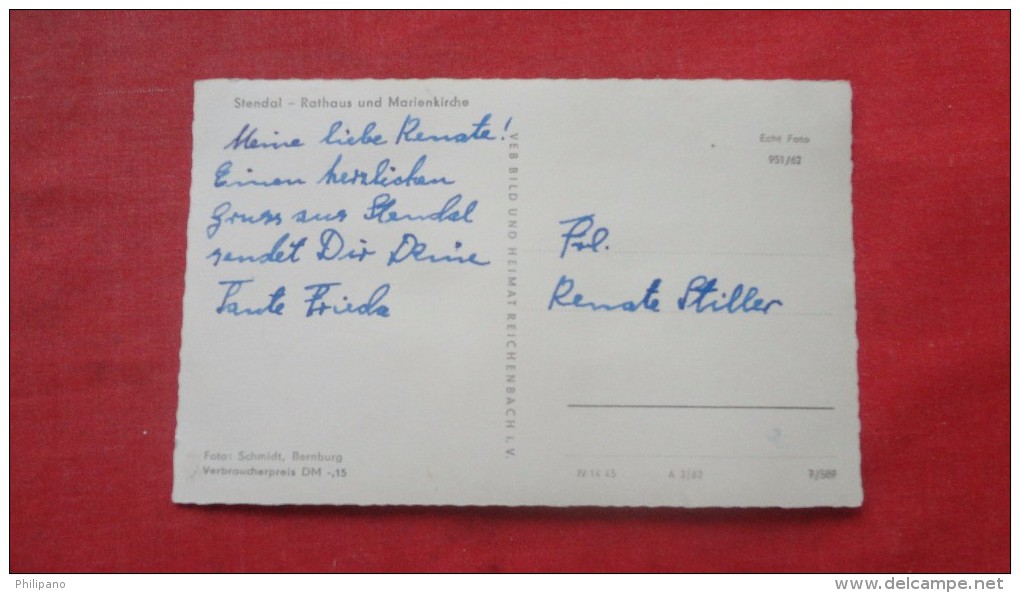 Stendal – Rathaus und Marienkirche
Meine liebe Renate!
Einen herzlichen
Gruss aus Stendal
sendet Dir Deine
Tante Frieda
Foto: Schmidt, Bernburg
Verbraucherpreis DM -,15
VEB BILD UND HEIMAT REICHENBACH i. V.
Echt Foto
951/62
Frl.
Renate Stiller
IV 14 45 A 3/62
Philipano
www.delcampe.net